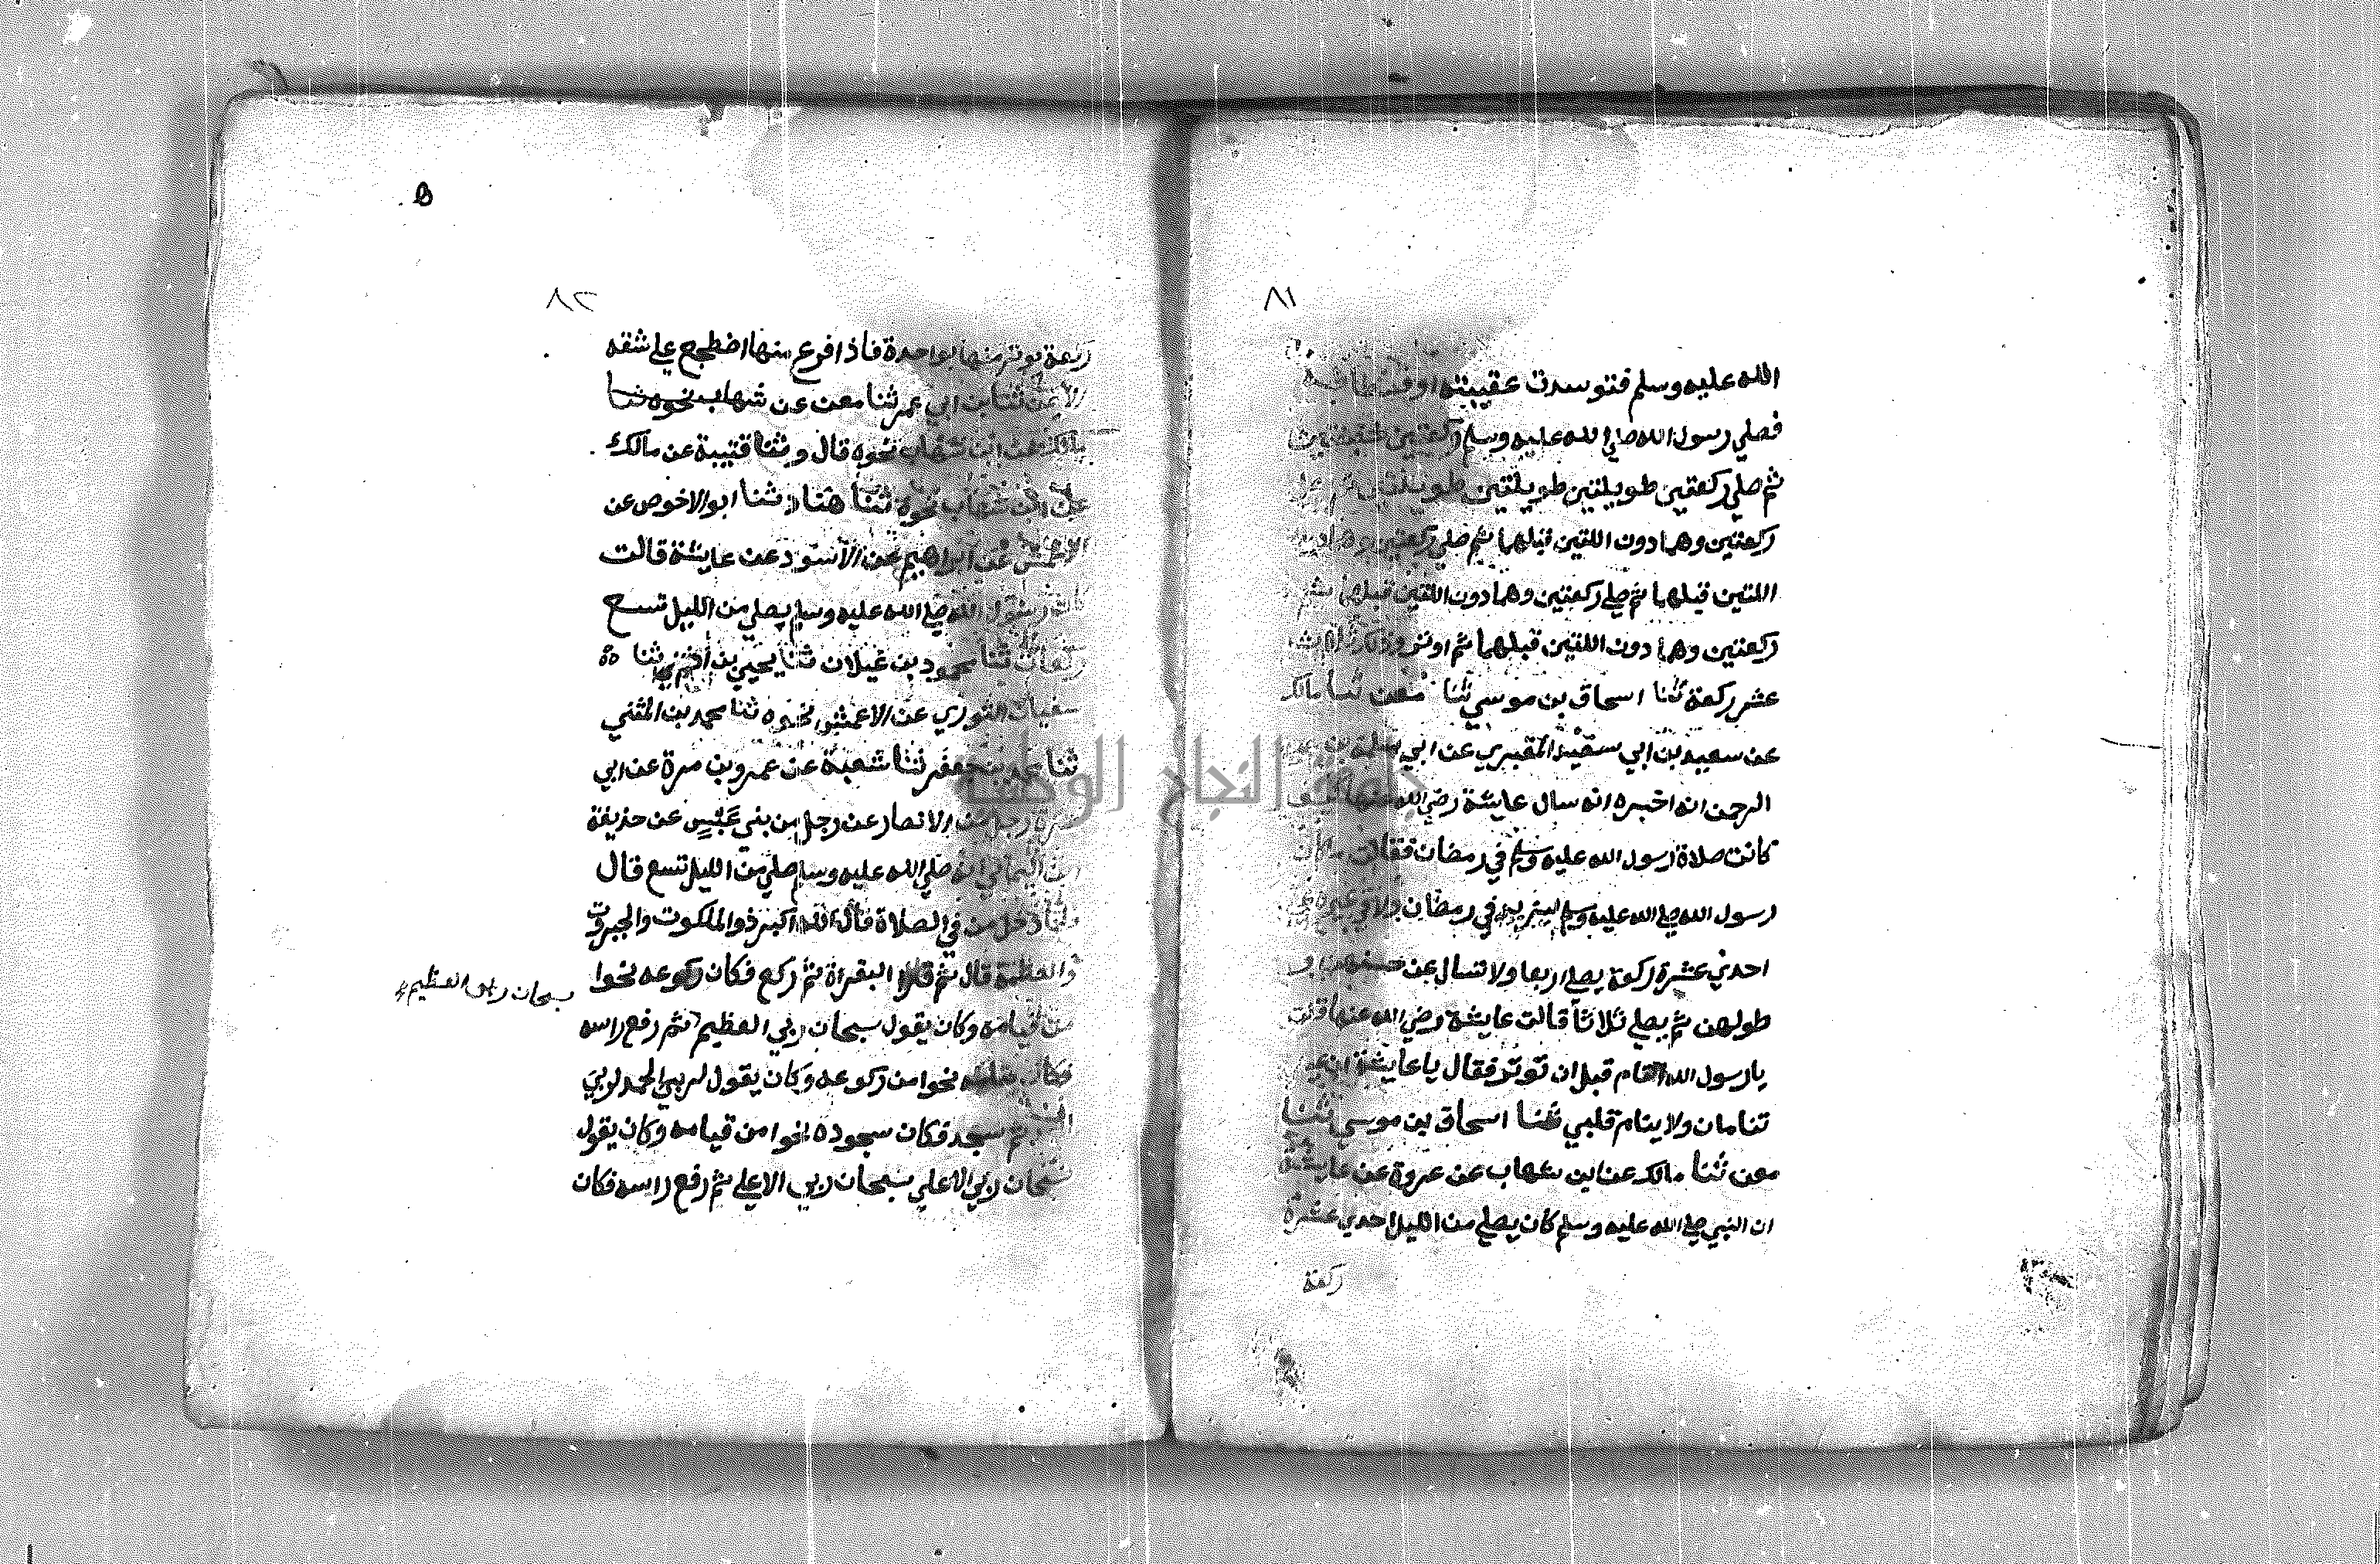 ٨١
الله عليه وسلم فتوسدت عقيبته او فسطاطه
فصلي رسول الله صلي الله عليه وسلم ركعتين خفيفتين
ثم صلي ركعتين طويلتين طويلتين طويلتين ثم صلي
ركعتين وهما دون اللتين قبلهما ثم صلي ركعتين وهما دون
اللتين قبلهما ثم صلي ركعتين وهما دون اللتين قبلهما ثم
ركعتين وهما دون اللتين قبلهما ثم اوتر وذلك ثلاث
عشر ركعة ثنا اسحاق بن موسي ثنا معن ثنا مالك
عن سعيد بن ابي سعيد المقبري عن ابي سلمة بن
الرحمن انه اخبره انه سال عايشة رضي الله عنها كيف
كانت صلاة رسول الله عليه وسلم في رمضان فقالت ما كان
رسول الله صلي الله عليه وسلم ليزيد في رمضان ولا في غيره
احدي عشرة ركوة يصلي اربعا ولا تسال عن حسنهن و
طولهن ثم يصلي ثلاثا قالت عايشة رضي الله عنها قلت
يا رسول الله اتنام قبل ان توتر فقال يا عايشة ان
تنامان ولا ينام قلبي ثنا اسحاق بن موسي ثنا
معن ثنا مالك عن ابن شهاب عن عروة عن عايشة
ان النبي صلي الله عليه وسلم كان يصلي من الليل احدي عشرة
ركعة
٥
٨٢
ركعة يوتر منها بواحدة فاذا فرغ منها اضطجع علي شقه
الايمن ثنا ابن ابي عمر ثنا معن عن شهاب نحوه ثنا
مالك عن ابن شهاب نحوه قال وثنا قتيبة عن مالك
عن ابن شهاب نحوه ثنا هناد ثنا ابو الاخوص عن
الاعمش عن ابراهيم عن الاسود عن عايشة قالت
كان رسول الله صلي الله عليه وسلم يصلي من الليل تسع
ركعات ثنا محمود بن غيلان ثنا يحيي بن ادم ثنا
سفيان الثوري عن الاعمش نحوه ثنا محمد بن المثني
ثنا محمد بن جعفر ثنا شعبة عن عمرو بن مرة عن ابي
حمزة رجل من الانصار عن رجل من بني عبس عن حذيفة
بن اليماني انه صلي الله عليه وسلم صلي من الليل تسع قال
فلما دخل من في الصلاة قال الله اكبر ذو الملكوت والجبروت
والعظمة قال ثم قرا البقراة ثم ركع فكان ركوعه نحوا
من قيامه وكان يقول سبحان ربي العظيم ثم رفع راسه
سبحان ربي العظيم
فكان قيامه نحوا من ركوعه وكان يقول لربي الحمد لربي
الحمد ثم سجد فكان سجوده نحوا من قيامه وكان يقول
سبحان ربي الاعلي سبحان ربي الاعلي ثم رفع راسه فكان
جامعة النجاح الوطنية